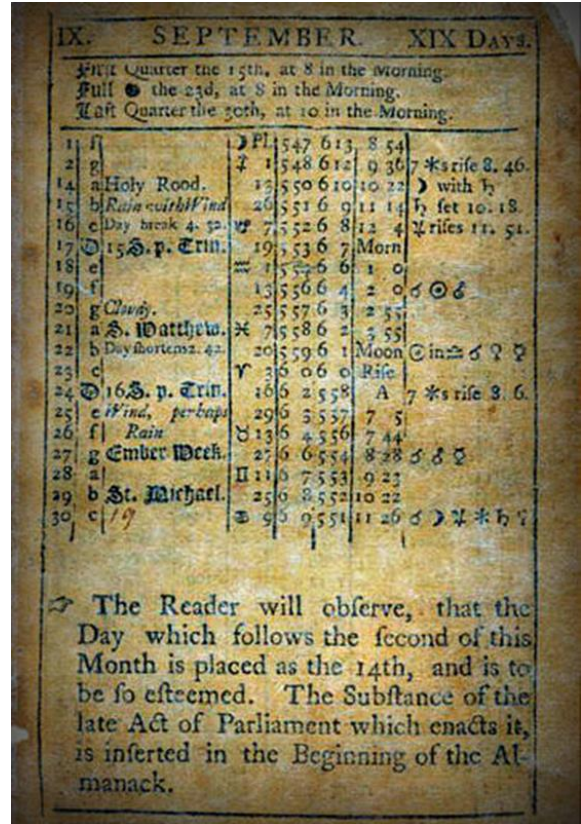 IX. SEPTEMBER. XIX Days.
First Quarter the 15th, at 8 in the Morning.
Full ● the 23d, at 8 in the Morning.
Last Quarter the 30th, at 10 in the Morning.
1 f ☽ Pl. 5 47 6 13 8 54
2 g ♐ 1 5 48 6 12 9 36 7 *s rise 8. 46.
14 a Holy Rood. 13 5 50 6 10 10 22 ☽ with ♄
15 b Rain with Wind 26 5 51 6 9 11 14 ♄ set 10. 18.
16 c Day break 4. 52. ♑ 7 5 52 6 8 12 4 ♃ rises 11. 51.
17 15 S. p. Trin. 19 5 53 6 7 Morn
18 e ♒ 1 6 6 1 0
19 f 13 5 56 6 4 2 0 ☌ ☉ ♂
20 g Cloudy. 25 5 57 6 3 2 55
21 a S. Matthew. ♓ 7 5 58 6 2 3 55
22 b Day shortens 2. 42. 20 5 59 6 1 Moon ☉ in ♎ ☌ ♀ ☿
23 c ♈ 3 6 0 6 0 Rise
24 16 S. p. Trin. 16 6 2 5 58 A 7 *s rise 8. 6.
25 e Wind, perhaps 29 6 3 5 57 7 5
26 f Rain ♉ 13 6 4 5 56 7 44
27 g Ember Week. 27 6 6 5 54 8 28 ☌ ♂ ☿
28 a ♊ 11 6 7 5 53 9 23
29 b St. Michael. 25 6 8 5 52 10 22
30 c 19 ♋ 9 6 9 5 51 11 26 ☌ ☽ ♃ * ♄ ♀
☞ The Reader will obſerve, that the
Day which follows the ſecond of this
Month is placed as the 14th, and is to
be ſo eſteemed. The Subſtance of the
late Act of Parliament which enacts it,
is inſerted in the Beginning of the Al-
manack.